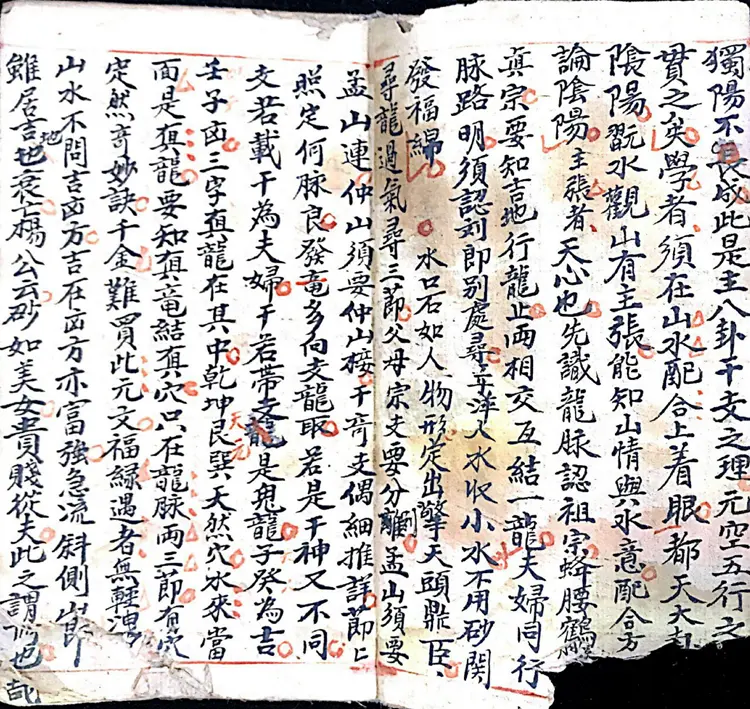 獨陽不長成此是主八卦干支之理元空五行之
貫之矣學者須在山水配合上着眼都天大
陰陽翫水觀山有主張能知山情與水意配合方
論陰陽主張者天心也先識龍脉認祖宗蜂腰鶴
真宗要知吉地行龍止兩相交互結一龍夫婦同行
脉路明須認刘郎別處尋平洋大水收小水不用砂関
發福綿 水口石如人物形定出擎天頭鼎臣
尋龍過氣尋三節父母宗支要分離孟山須要
孟山連仲山須要仲山接干奇支偶細推詳節上
照定何脉良發竜多向支龍取若是干神又不同
支若載干為夫婦干若帶支龍是鬼龍子癸為吉
壬子凶三字真龍在其中乾坤艮巽天然穴水來當
天元
面是真龍要知真竜結真穴只在龍脉兩三節有穴
定然奇妙訣千金難買此元文福緑遇者無輕洩
山水不問吉凶方吉在凶方亦富強急流斜側山節
雖居吉地衰亡楊公云砂如美女貴賤從夫此之謂也